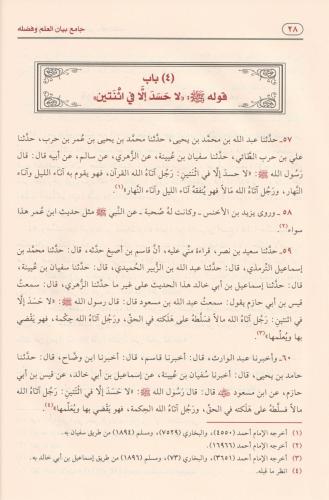 ٢٨
جامع بيان العلم وفضله
(٤) باب
قوله ﷺ: «لا حَسَدَ إلَّا في اثْنَتين»
٥٧ ـ حدَّثنا عبد الله بن محمَّد بن يحيى، حدَّثنا محمَّد بن يحيى بن عُمر بن حرب، حدَّثنا
علي بن حرب الطَّائي، حدَّثنا سفيان بن عُيينة، عن الزهري، عن سالم، عن أبيه قال: قال
رسول الله ﷺ: «لا حسدَ إلَّا في اثنتين: رَجُل آتاهُ الله القرآن، فهو يقوم به آناء الليل وآناء
النَّهار، ورَجُل آتاهُ الله مالاً فهو يُنفقهُ آناء الليل وآناء النَّهار»(١).
٥٨ ـ وروى يزيد بن الأخنس ـ وكانت لهُ صُحبة ـ عن النَّبي ﷺ مثل حديث ابن عُمر هذا
سواء(٢).
٥٩ ـ حدَّثنا سعيد بن نصر، قراءة منِّي عليه، أنَّ قاسم بن أصبغ حدَّثه، قال: حدَّثنا محمَّد بن
إسماعيل التِّرمذي، قال: حدَّثنا عبد الله بن الزُّبير الحُميدي، قال: حدَّثنا سفيان بن عُيينة، قال:
حدَّثنا إسماعيل بن أبي خالد هذا الحديث على غير ما حدَّثنا الزهري، قال: سمعتُ
قيس بن أبي حازم يقول: سمعتُ عبد الله بن مسعود قال: قال رسول الله ﷺ: «لا حَسَدَ إلَّا
في اثْنَتين: رَجُل آتاهُ الله مالاً فسلَّطهُ على هَلَكته في الحق، ورَجُل آتاهُ الله حِكمة، فهو يَقضي
بها ويُعلِّمها»(٣)
٦٠ ـ وأخبرنا عبد الوارث، قال: أخبرنا قاسم، قال: أخبرنا ابن وضَّاح، قال: حدَّثنا
حامد بن يحيى، قال: أخبرنا سُفيان بن عُيينة، عن إسماعيل بن أبي خالد، عن قيس بن أبي
حازم، عن ابن مسعود ﷺ قال: قال رسُول الله ﷺ: «لا حَسَدَ إلَّا في اثْنَتين: رَجُل آتاهُ الله
مالاً فسلَّطهُ على هَلَكته في الحقِّ، ورَجُل آتاهُ الله الحِكمة، فهو يَقْضي بها ويُعلِّمها»(٤).
(١) أخرجه الإمام أحمد (٤٥٥٠)، والبخاري (٧٥٢٩)، ومسلم (١٨٩٤) من طريق سفيان به.
(٢) أخرجه الإمام أحمد (١٦٩٦٦).
(٣) أخرجه الإمام أحمد (٣٦٥١)، والبخاري (٧٣)، ومسلم (١٨٩٦) من طريق إسماعيل بن أبي خالد به.
(٤) انظر ما قبله.